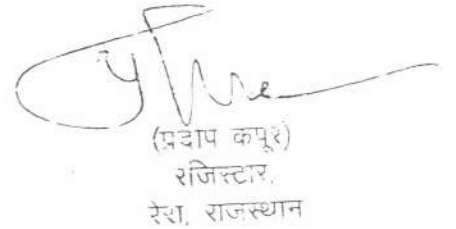 (प्रदीप कपूर)
रजिस्टार,
रेरा, राजस्थान